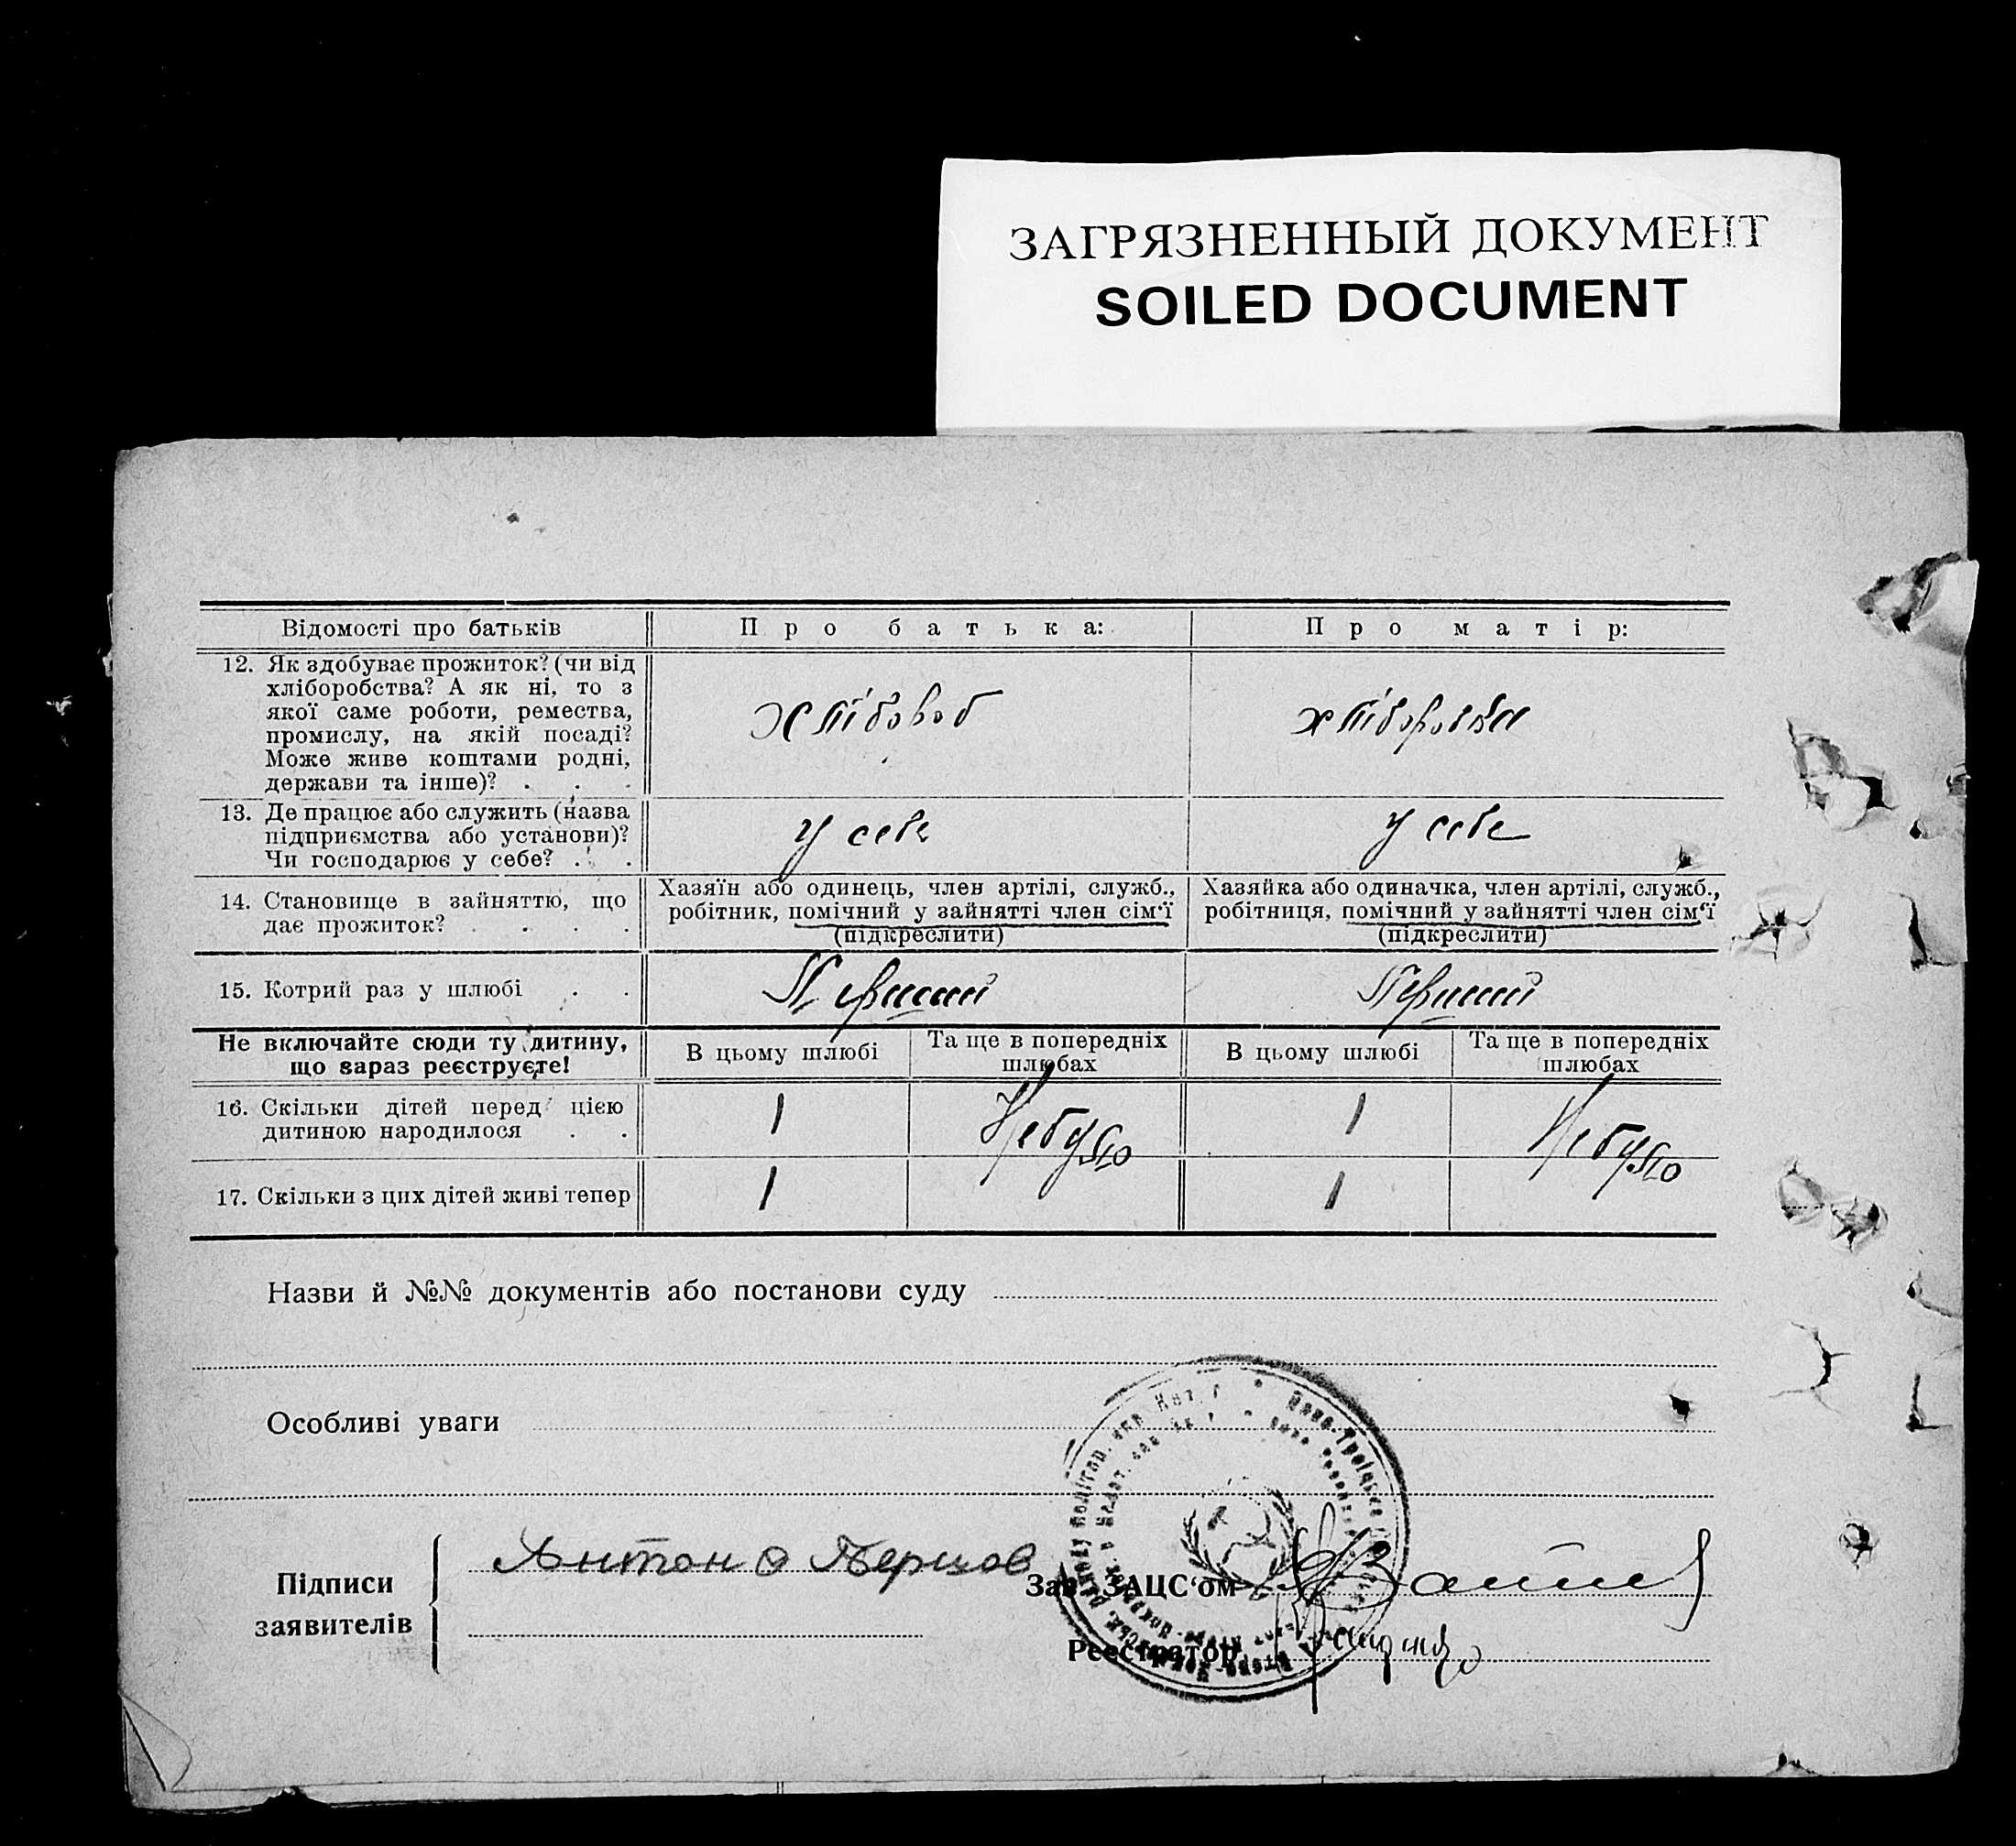 ЗАГРЯЗНЕННЫЙ ДОКУМЕНТ
SOILED DOCUMENT
Відомості про батьків
Про батька:
Про матір:
12. Як здобуває прожиток? (чи від
хліборобства? А як ні, то з
якої саме роботи, ремества,
промислу, на якій посаді?
Може живе коштами родні,
держави та інше)? . . .
хлібороб
хліборобка
13. Де працює або служить (назва
підприємства або установи)?
Чи господарює у себе? . .
у себе
у себе
14. Становище в зайняттю, що
дає прожиток? . . . .
Хазяїн або одинець, член артілі, служб.,
робітник, помічний у зайнятті член сім'ї
(підкреслити)
Хазяйка або одиначка, член артілі, служб.,
робітниця, помічний у зайнятті член сім'ї
(підкреслити)
15. Котрий раз у шлюбі . .
Перший
Перший
Не включайте сюди ту дитину,
що зараз реєструєте!
В цьому шлюбі
Та ще в попередніх
шлюбах
В цьому шлюбі
Та ще в попередніх
шлюбах
16. Скільки дітей перед цією
дитиною народилося . .
1
Небуло
1
Небуло
17. Скільки з цих дітей живі тепер
1
1
Назви й №№ документів або постанови суду
Особливі уваги
Підписи
заявителів
Антон
Зав. ЗАЦС'ом
Реєстратор